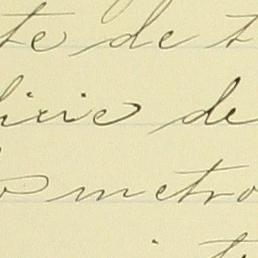 te de t
irie de
o metro